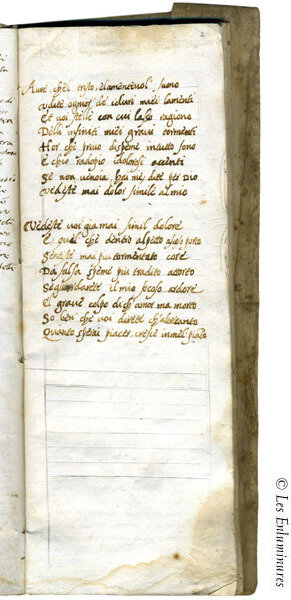 2
Aure, ch'el tristo, e lamenteuol' suono
udite ogn'or de i duri miei lamenti
Et voi stelle con cui lasso ragiono
Delli infiniti miei graui tormenti
Hor che priuo di speme in tutto sono
E ch'io radopio i dolorosi accenti
Se non u'noia, hai me, dite per Dio
Vedeste mai dolor simile al mio
Vedeste voi gia mai simil dolore
E quel che dentro al petto ascoso porto
Sentiste mai piu tormentato core
Da falsa speme piu tradito a torto
Se guardarete il mio ardore
E graue colpo di ch' amor m'a morto
So ben che voi direte
Quanto piacer, cresce
© Les Enluminures